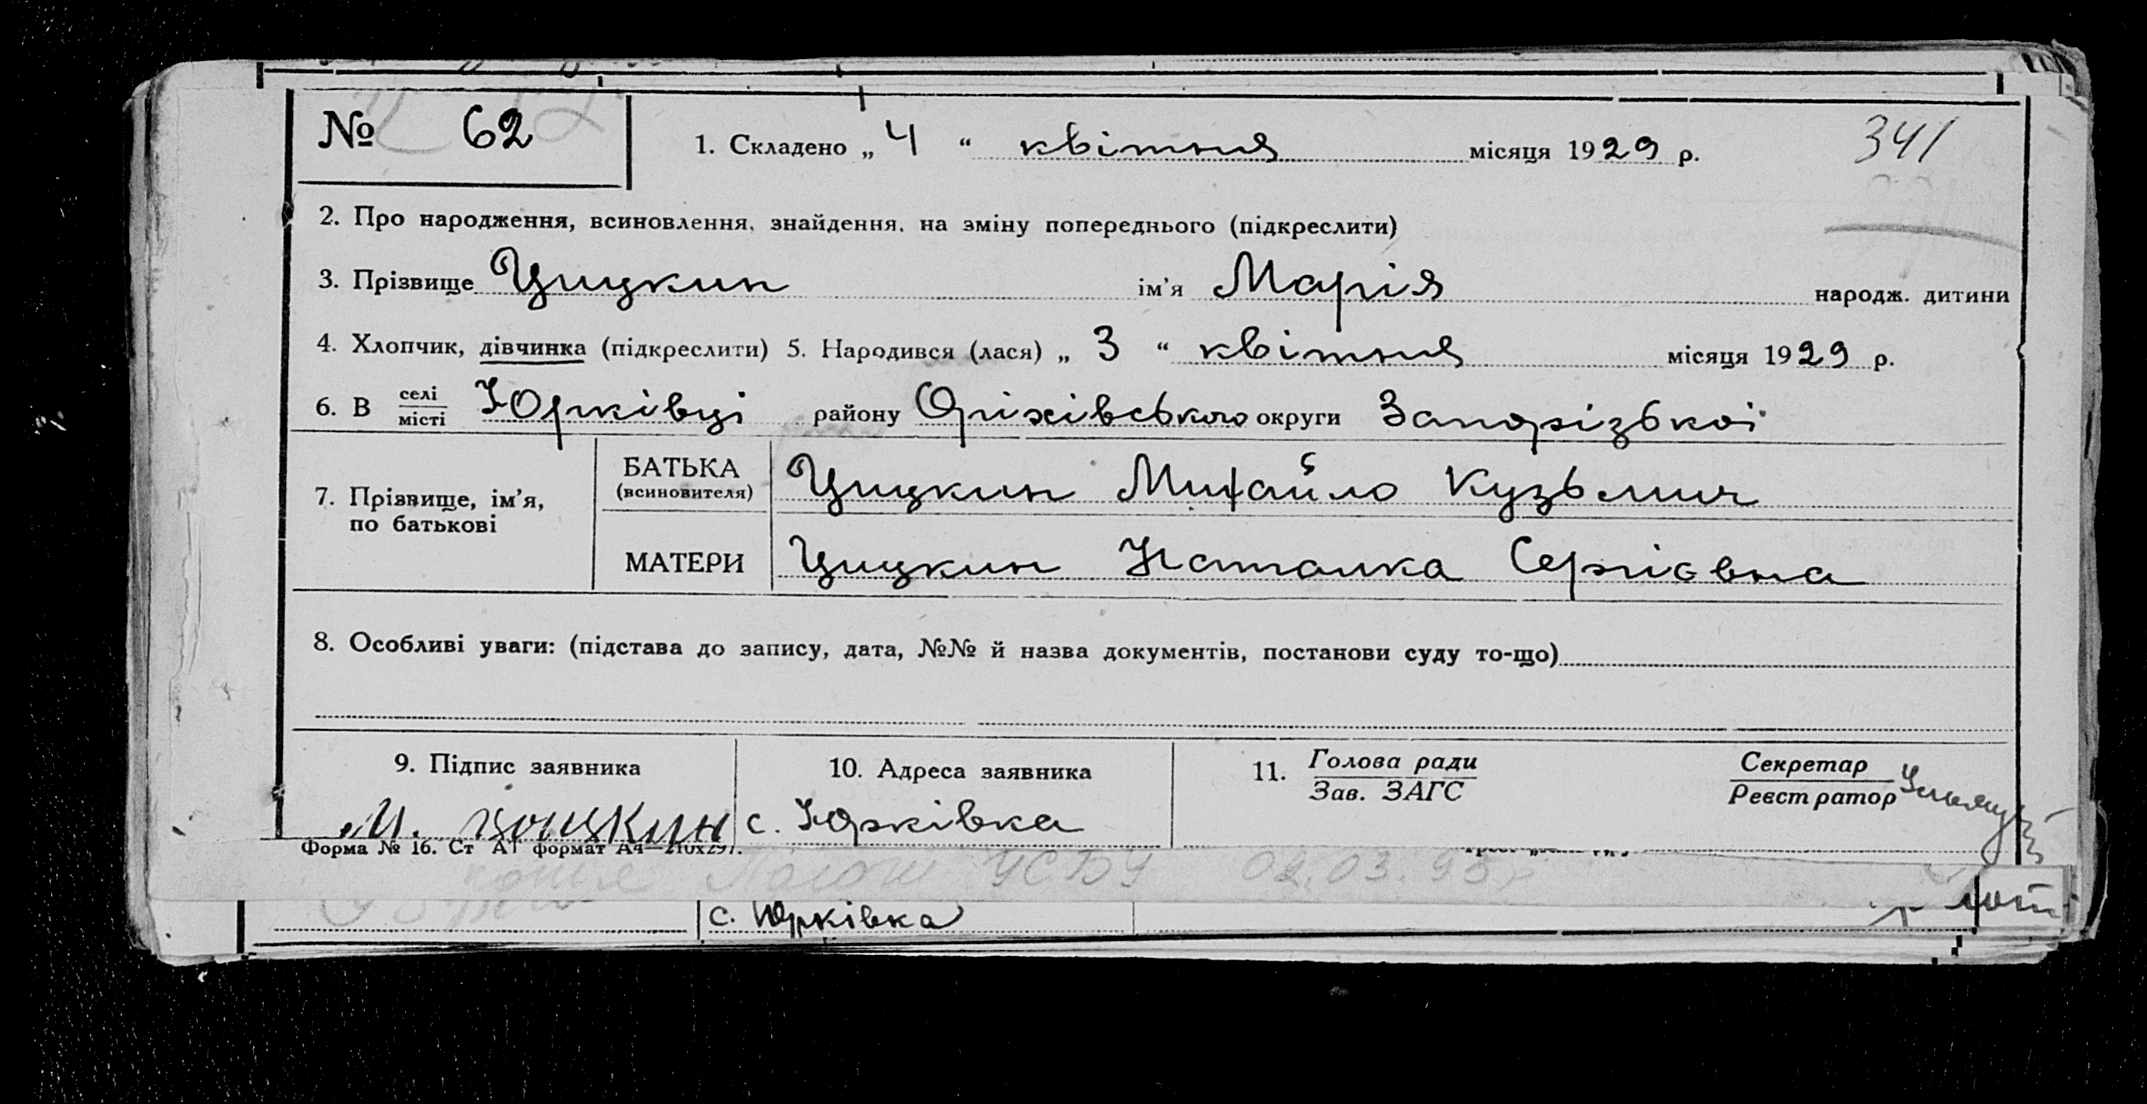 № 62
1. Складено „ 4 “ квітня місяця 1929 р.
341
2. Про народження, всиновлення, знайдення, на зміну попереднього (підкреслити)
3. Прізвище Цицкин ім'я Марія народж. дитини
4. Хлопчик, дівчинка (підкреслити) 5. Народився (лася) „ 3 “ квітня місяця 1929 р.
6. В селі Юрківці району Оріхівського округи Запорізької
місті
7. Прізвище, ім'я, по батькові
БАТЬКА (всиновителя) Цицкин Михайло Кузьмич
МАТЕРИ Цицкин Наталка Сергієвна
8. Особливі уваги: (підстава до запису, дата, №№ й назва документів, постанови суду то-що)
9. Підпис заявника
М. Цыцкин
10. Адреса заявника
с. Юрківка
11. Голова ради
Зав. ЗАГС
Секретар
Реєстратор
Форма № 16. Ст АГ формат А4—210х297.
копія УСБУ 02.03.95 г
с. Юрківка